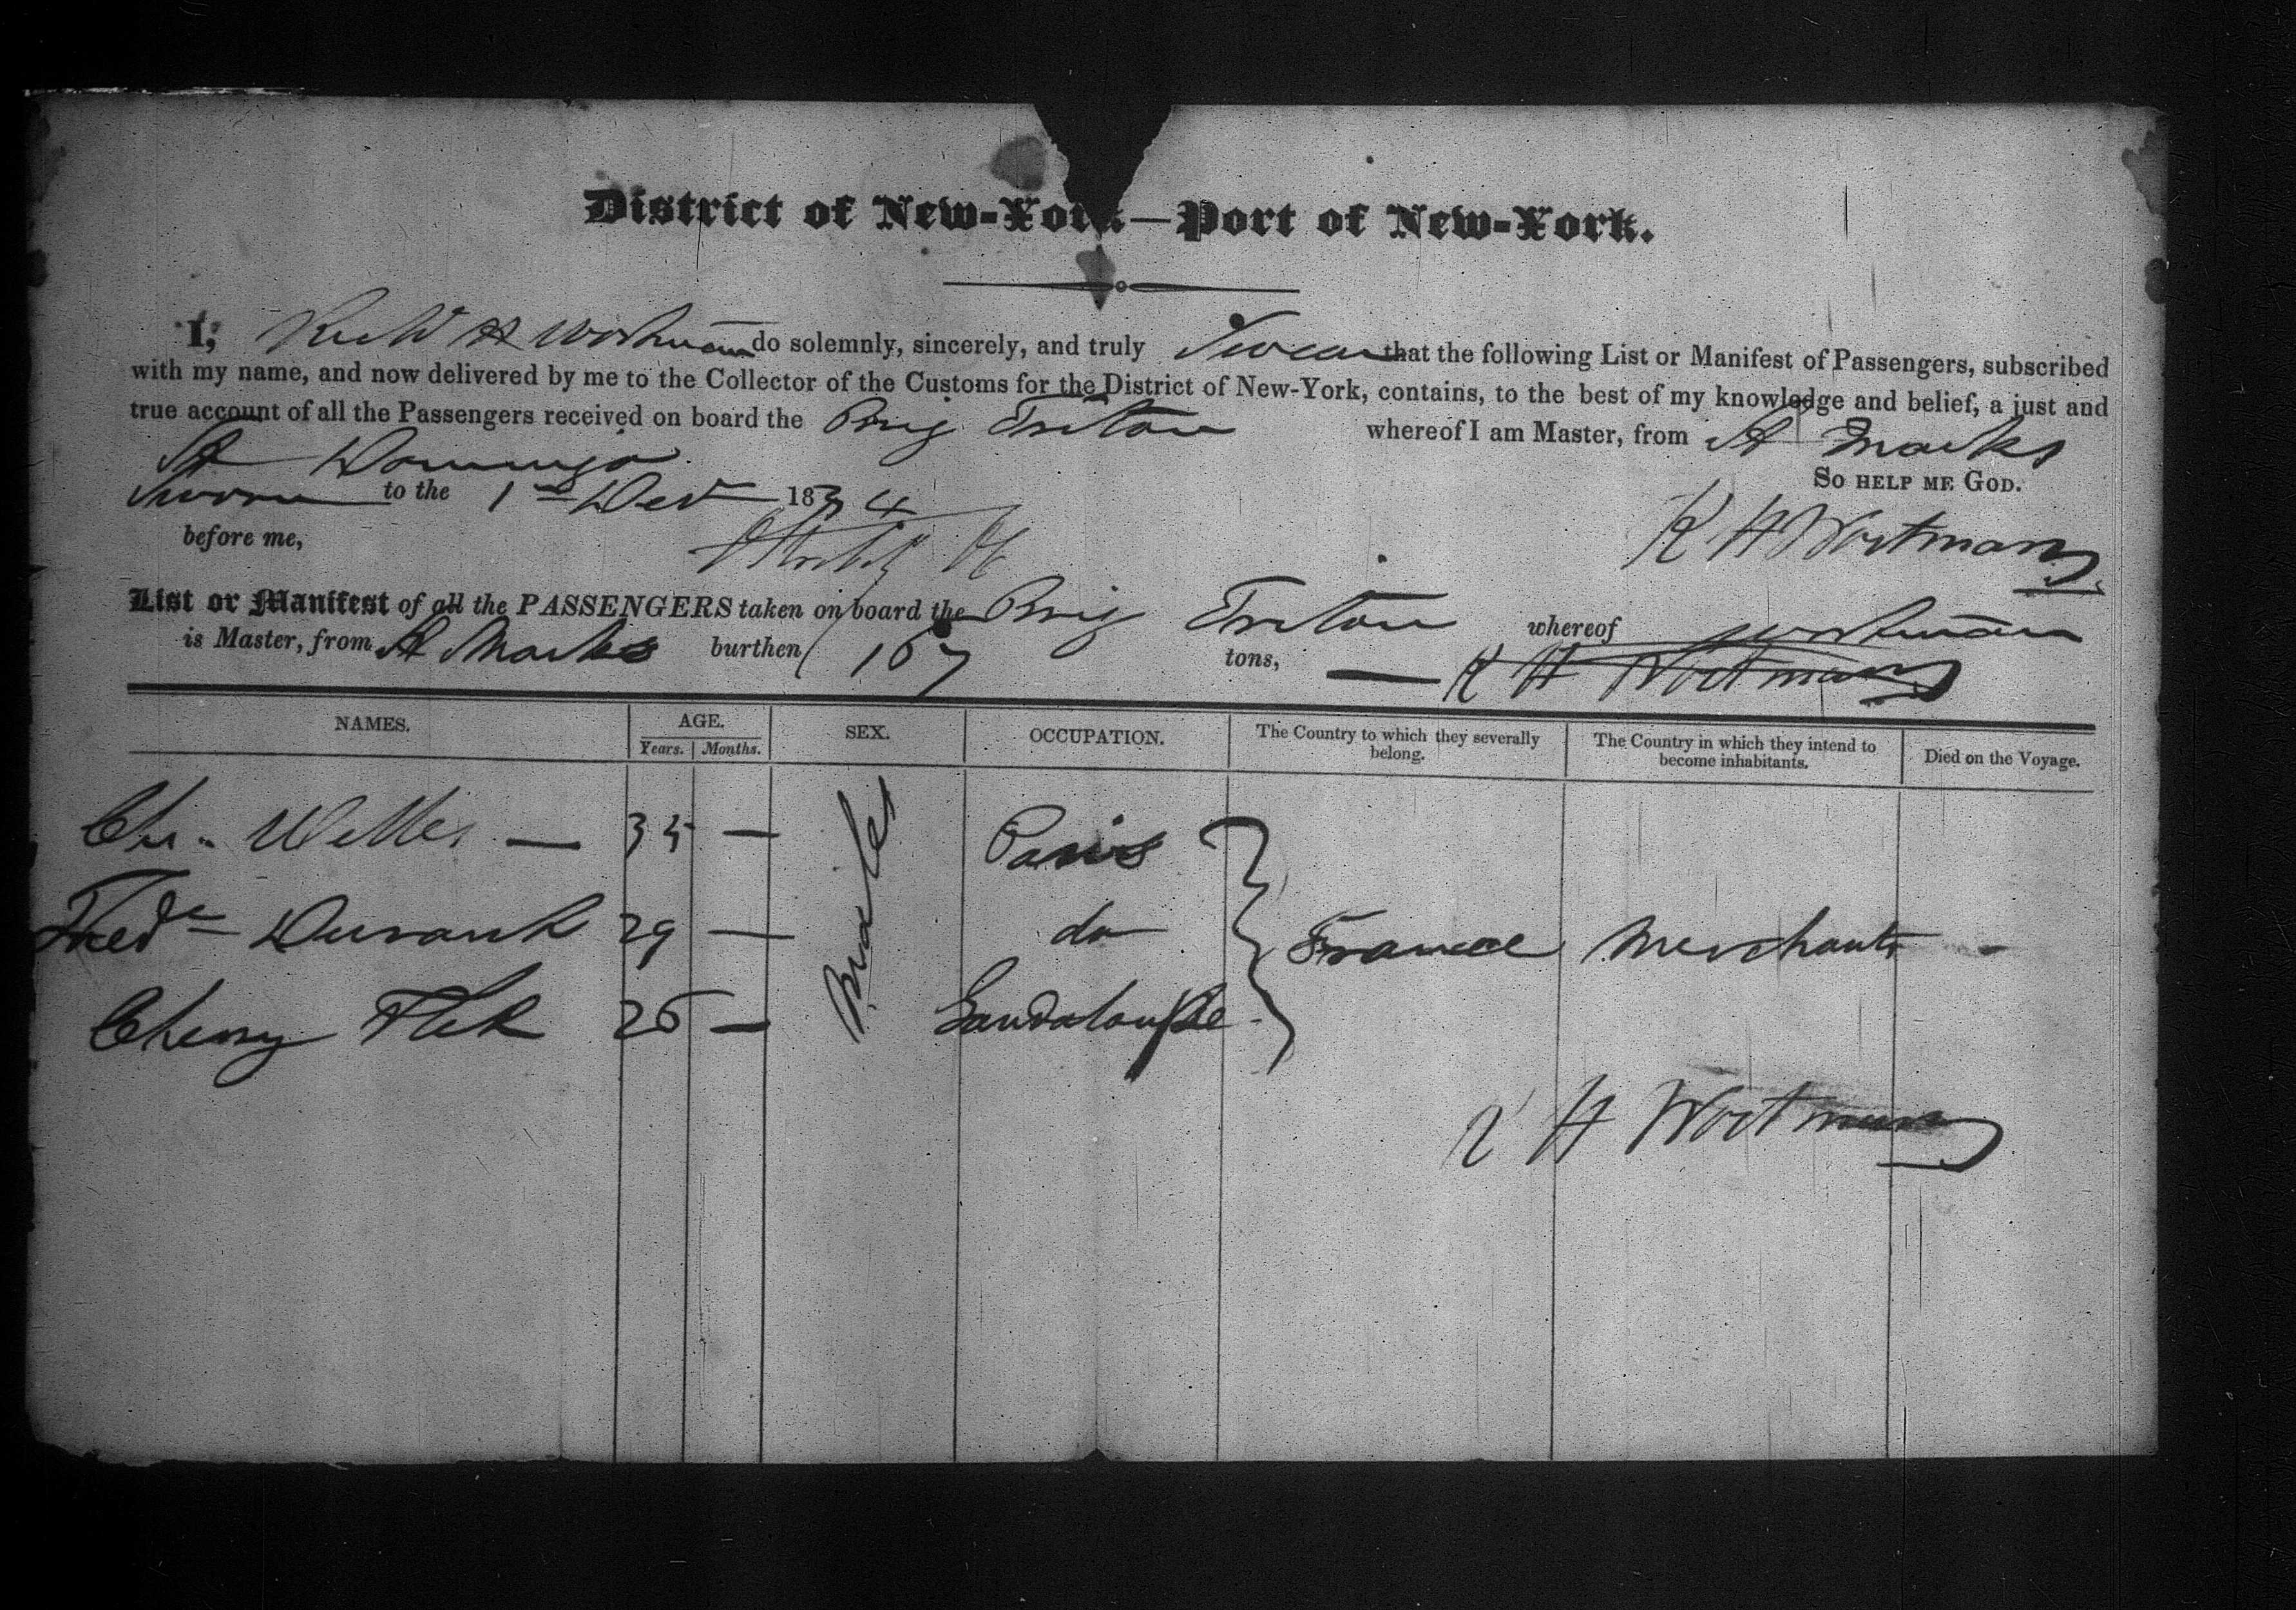 District of New-York—Port of New-York.
I, Richd H Wortman do solemnly, sincerely, and truly Swear that the following List or Manifest of Passengers, subscribed
with my name, and now delivered by me to the Collector of the Customs for the District of New-York, contains, to the best of my knowledge and belief, a just and
true account of all the Passengers received on board the Brig Triton whereof I am Master, from St Marks
St Domingo
So HELP ME GOD.
Sworn to the 1st Decr 1834
before me,
R H Wortman
List or Manifest of all the PASSENGERS taken on board the Brig Triton whereof Wortman
is Master, from St Marks burthen 167 tons, R H Wortman
NAMES. AGE. SEX. OCCUPATION. The Country to which they severally belong. The Country in which they intend to become inhabitants. Died on the Voyage.
Years. Months.
Ch. 35 — Males Paris
Fredk Durant 29 — do France Merchants -
Cherry 26 — Gaudaloupe
R H Wortman